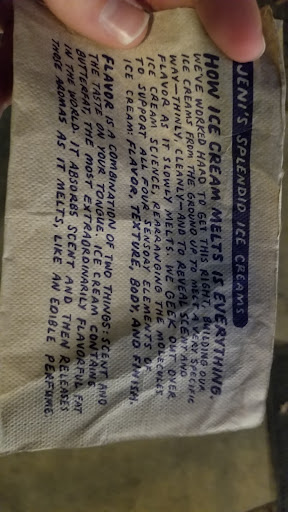 JENI'S SPLENDID ICE CREAMS
HOW ICE CREAM MELTS IS EVERYTHING.
WE'VE WORKED HARD TO GET THIS RIGHT, BUILDING OUR
ICE CREAMS FROM THE GROUND UP TO MELT A VERY SPECIFIC
WAY—THINLY, CLEANLY—AND TO REVEAL SCENT AND
FLAVOR AS IT SLOWLY MELTS. WE GEEK OUT OVER
ICE CREAM SCIENCE, REARRANGING THE MOLECULES
TO SUPPORT ALL FOUR SENSORY ELEMENTS OF
ICE CREAM: FLAVOR, TEXTURE, BODY, AND FINISH.
FLAVOR IS A COMBINATION OF TWO THINGS: SCENT AND
THE TASTE ON YOUR TONGUE. ICE CREAM CONTAINS
BUTTERFAT, THE MOST EXTRAORDINARILY FLAVORFUL FAT
IN THE WORLD. IT ABSORBS SCENT AND THEN RELEASES
THOSE AROMAS AS IT MELTS, LIKE AN EDIBLE PERFUME.